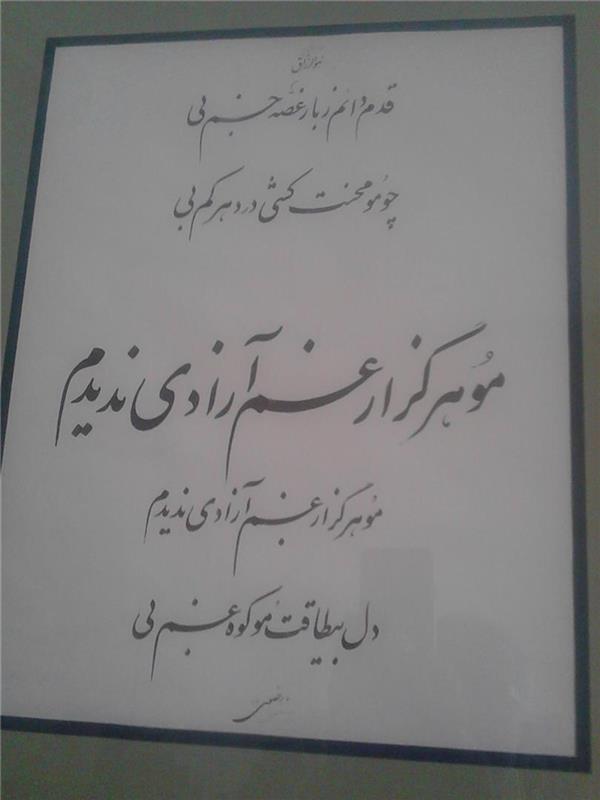 هوالرزاق
قدم دائم ز بار غصه خم بی
چو مو محنت کشی در دهر کم بی
مو هرگز از غم آزادی ندیدم
مو هرگز از غم آزادی ندیدم
دل بیطاقت مو کوه غم بی